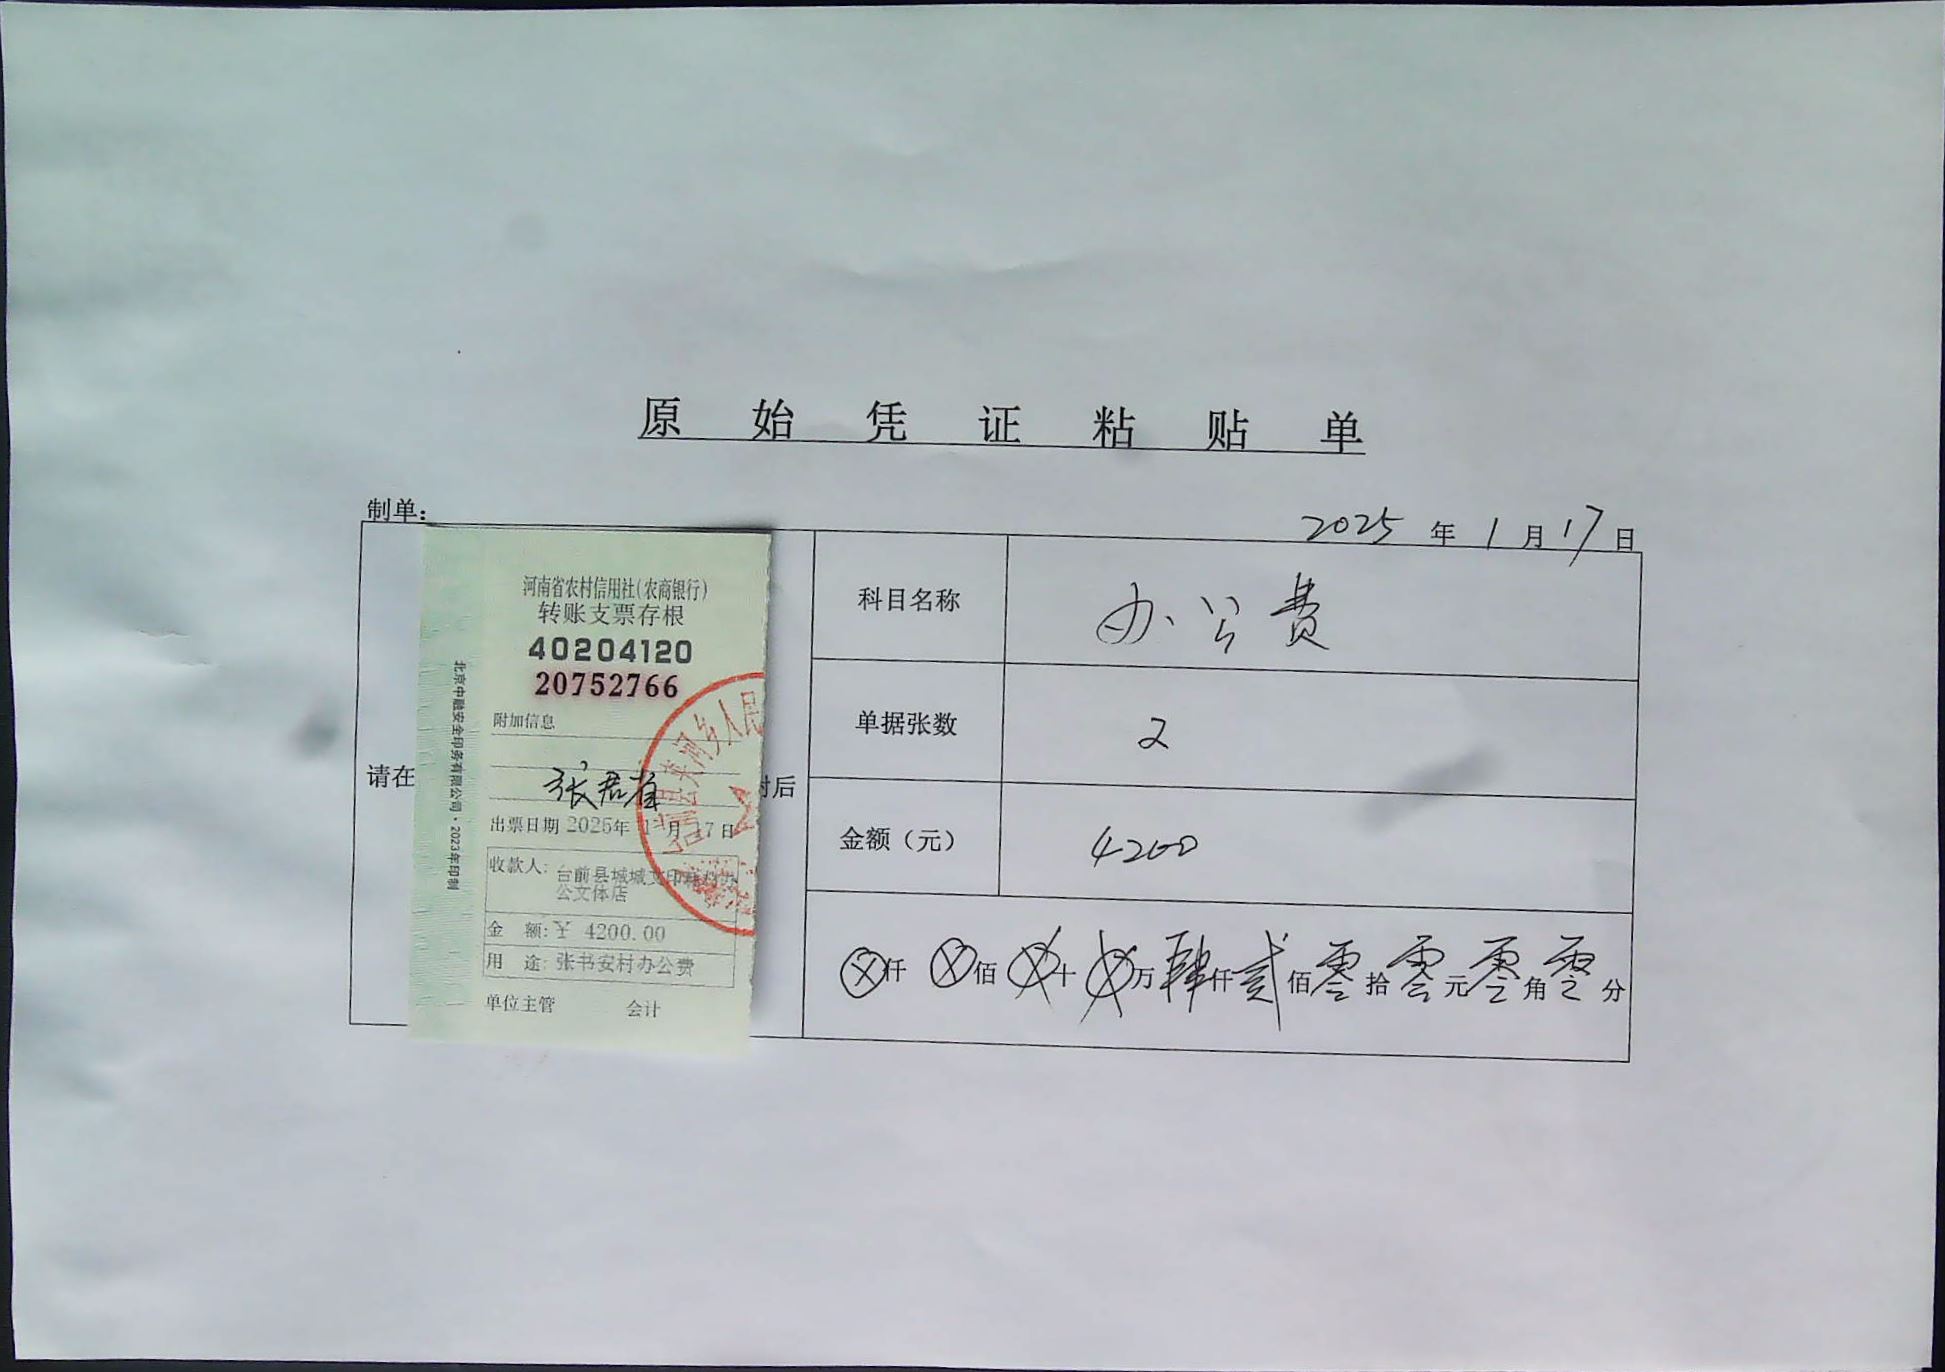 原始凭证粘贴单
制单：
2025年1月17日
请在
付后
河南省农村信用社(农商银行)
转账支票存根
40204120
20752766
附加信息
张君省
出票日期 2025年 1 月 17 日
收款人: 台前县城城文印
公文体店
金 额: ¥ 4200.00
用 途: 张书安村办公费
单位主管 会计
北京中融安全印务有限公司·2023年印制
乡人民
科目名称 办公费
单据张数 2
金额（元） 4200
ⓧ仟ⓧ佰ⓧ十ⓧ万肆仟贰佰零拾零元零角零分